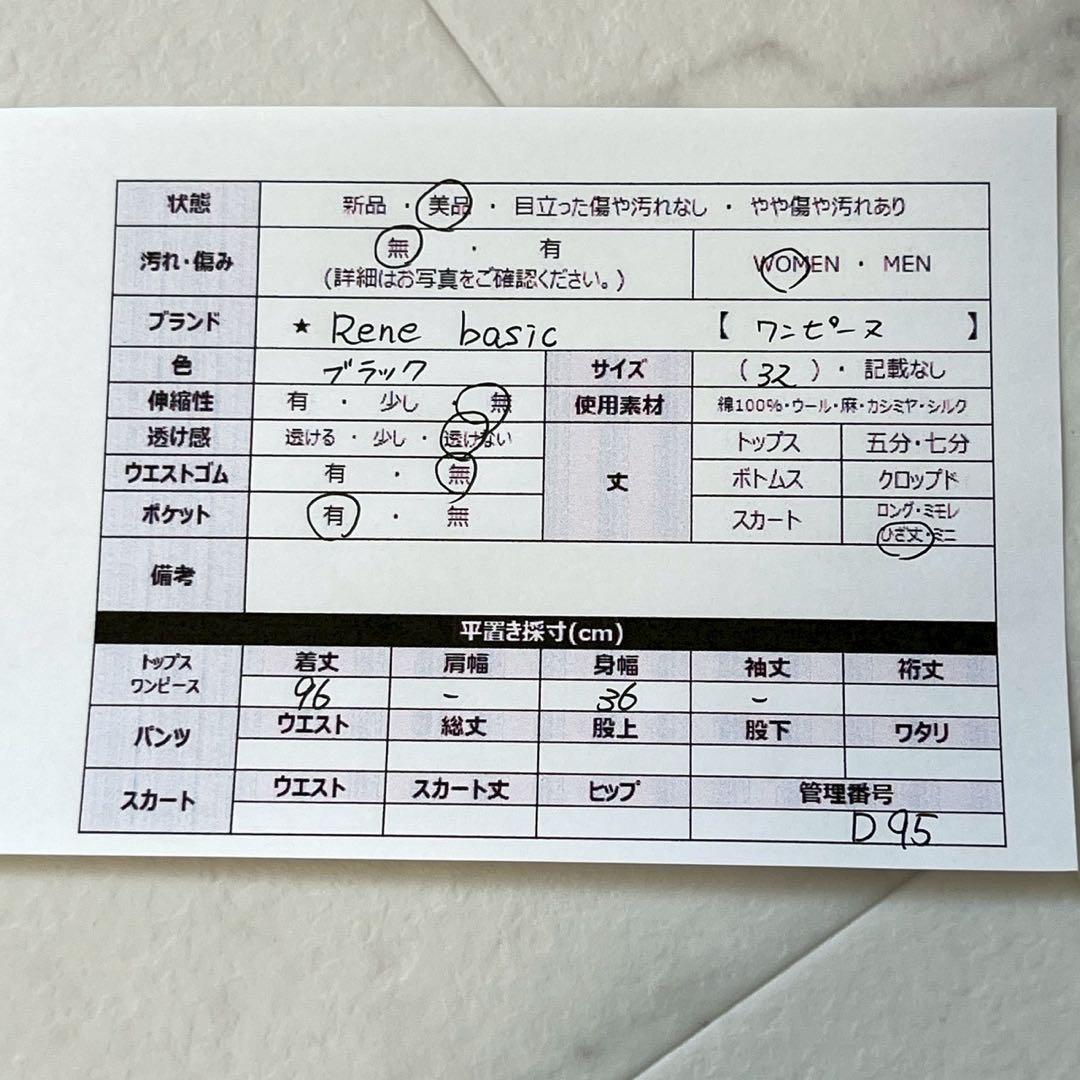 状態 新品 ・ 美品 ・ 目立った傷や汚れなし ・ やや傷や汚れあり
汚れ・傷み 無 ・ 有 WOMEN ・ MEN
(詳細はお写真をご確認ください。)
ブランド ★ Rene basic 【 ワンピース 】
色 ブラック サイズ ( 32 ) ・ 記載なし
伸縮性 有 ・ 少し ・ 無 使用素材 綿100%・ウール・麻・カシミヤ・シルク
透け感 透ける ・ 少し ・ 透けない 丈 トップス 五分・七分
ウエストゴム 有 ・ 無 ボトムス クロップド
ポケット 有 ・ 無 スカート ロング・ミモレ
ひざ丈・ミニ
備考
平置き採寸(cm)
トップス
ワンピース 着丈 肩幅 身幅 袖丈 裄丈
96 - 36 -
パンツ ウエスト 総丈 股上 股下 ワタリ
スカート ウエスト スカート丈 ヒップ 管理番号
D95